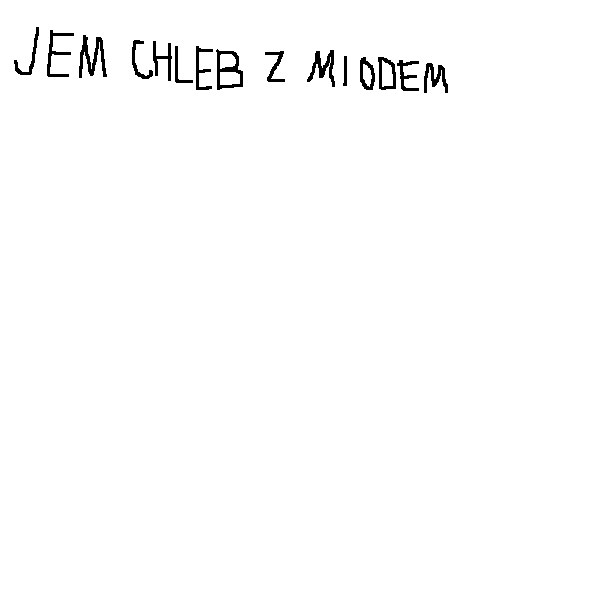 JEM CHLEB Z MIODEM